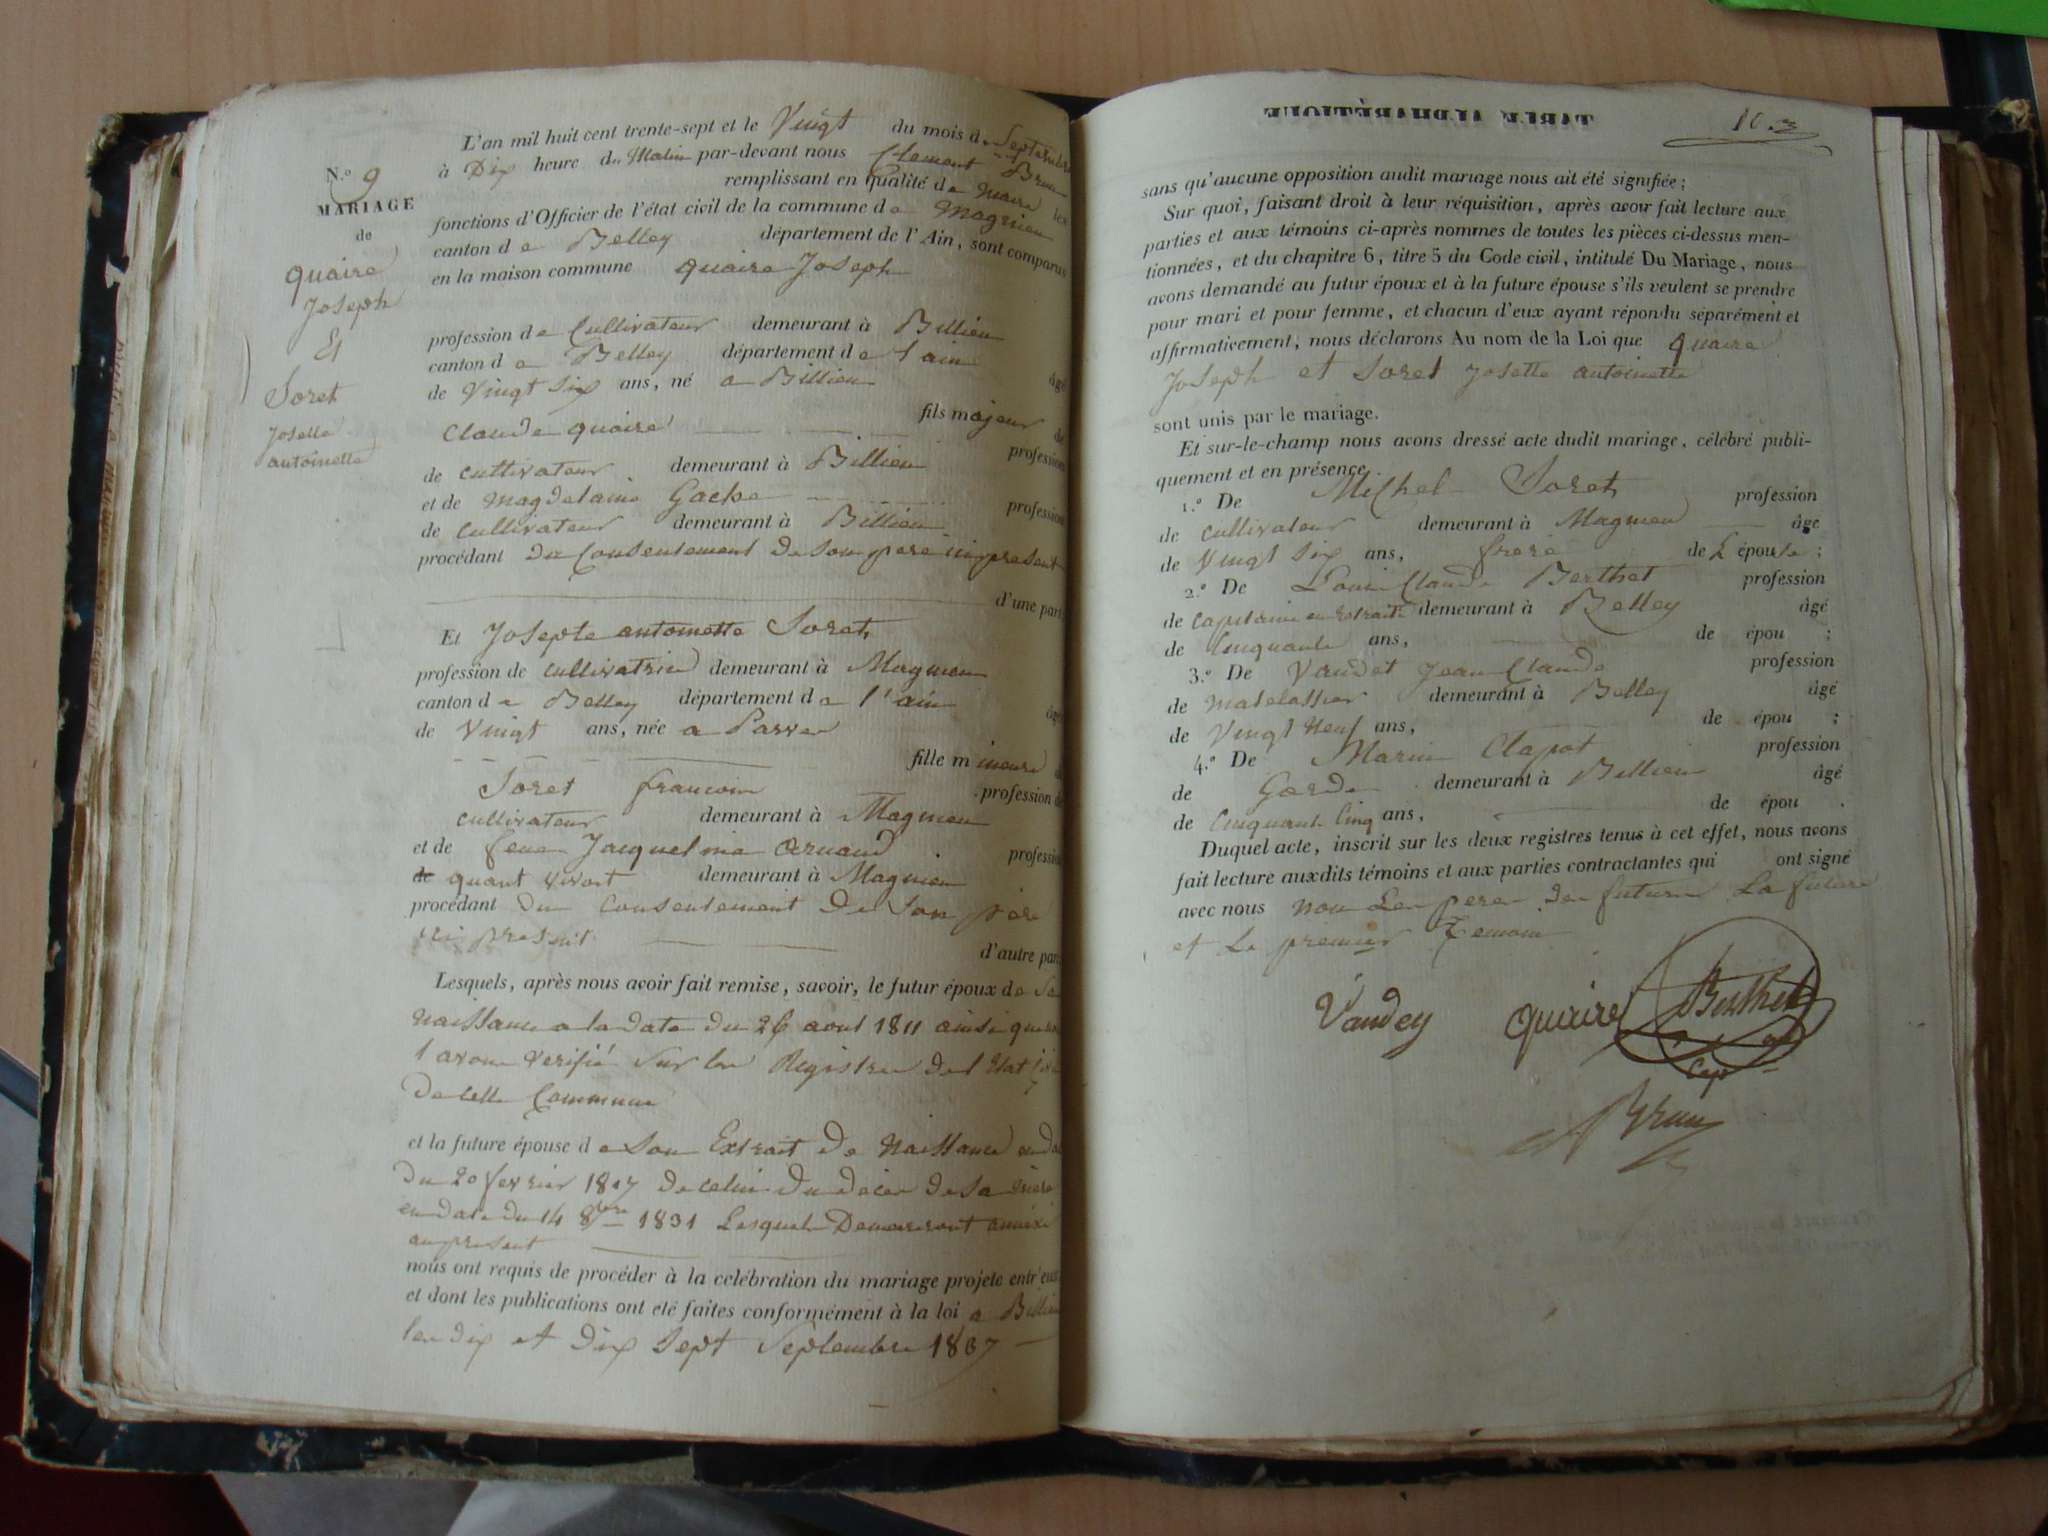 N.º 9
MARIAGE
de
quaire
Joseph
Et
Soret
Josette
antoinette
L'an mil huit cent trente-sept et le Vingt du mois de Septembre
à Dix heure du Matin par-devant nous Clement Brun
remplissant en qualité de Maire les
fonctions d'Officier de l'état civil de la commune de Magnieu
canton de Belley département de l'Ain, sont comparus
en la maison commune quaire Joseph
profession de Cultivateur demeurant à Billieu
canton de Belley département de l'ain
âgé
de Vingt Six ans, né a Billieu
fils majeur de
Claude quaire
profession
de cultivateur demeurant à Billieu
et de Magdelaine Gache
profession
de cultivateur demeurant à Billieu
procédant du Consentement de son pere ici present
d'une part
Et Josepte antoinette Soret
profession de cultivatrice demeurant à Magnieu
canton de Belley département de l'ain
âgée
de Vingt ans, née a Parves
fille mineure de
Soret francois profession de
cultivateur demeurant à Magnieu
et de feue Jacqueline Arnaud profession
de quant vivoit demeurant à Magnieu
procédant du Consentement de son père
ici present
d'autre part
Lesquels, après nous avoir fait remise, savoir, le futur époux de sa
Naissance a la date du 26 aout 1811 ainsi que nous
l'avons verifié sur les Registres de l'Etat civil
de cette Commune
et la future épouse de son Extrait de Naissance en date
du 20 fevrier 1817 de celui du décès de sa mère
en date du 14 8bre 1831 Lesquels Demeureront annexé
au present
nous ont requis de procéder à la célébration du mariage projeté entr'eux
et dont les publications ont été faites conformément à la loi a Billieu
les dix et dix sept Septembre 1837
TABLE ALPHABÉTIQUE
sans qu'aucune opposition audit mariage nous ait été signifiée;
Sur quoi, faisant droit à leur réquisition, après avoir fait lecture aux
parties et aux témoins ci-après nommés de toutes les pièces ci-dessus men-
tionnées, et du chapitre 6, titre 5 du Code civil, intitulé Du Mariage, nous
avons demandé au futur époux et à la future épouse s'ils veulent se prendre
pour mari et pour femme, et chacun d'eux ayant répondu séparément et
affirmativement, nous déclarons Au nom de la Loi que quaire
Joseph et Soret Josette antoinette
sont unis par le mariage.
Et sur-le-champ nous avons dressé acte dudit mariage, célébré publi-
quement et en présence
1.º De Michel Soret profession
de cultivateur demeurant à Magnieu âgé
de Vingt Six ans, frere de L'épouse;
2.º De Louis Claude Berthet profession
de capitaine en retraite demeurant à Belley âgé
de Cinquante ans, de épou ;
3.º De Vaudet Jean Claude profession
de matelassier demeurant à Belley âgé
de Vingt Neuf ans, de épou ;
4.º De Marin Clapot profession
de Garde demeurant à Billieu âgé
de Cinquante Cinq ans, de épou .
Duquel acte, inscrit sur les deux registres tenus à cet effet, nous avons
fait lecture auxdits témoins et aux parties contractantes qui ont signé
avec nous non Les peres des futurs La future
et Le premier Temoin
Vaudey quaire Berthet
Cap
Brun